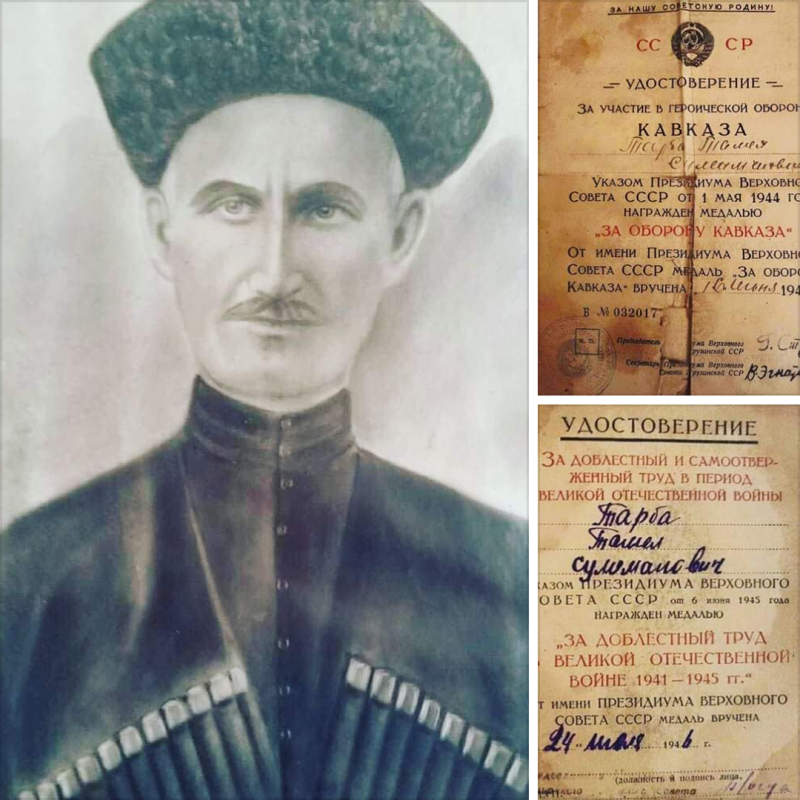 ЗА НАШУ СОВЕТСКУЮ РОДИНУ!
СС СР
УДОСТОВЕРЕНИЕ
ЗА УЧАСТИЕ В ГЕРОИЧЕСКОЙ ОБОРОН
КАВКАЗА
Тарба Тамел
УКАЗОМ ПРЕЗИДИУМА ВЕРХОВНО
СОВЕТА СССР ОТ 1 МАЯ 1944 ГО
НАГРАЖДЕН МЕДАЛЬЮ
„ЗА ОБОРОНУ КАВКАЗА“
ОТ ИМЕНИ ПРЕЗИДИУМА ВЕРХОВН
СОВЕТА СССР МЕДАЛЬ „ЗА ОБОРО
КАВКАЗА“ ВРУЧЕНА „ июня 194
В № 032017
М. П.
Председатель ума Верховного
рузинской ССР
Секретарь Президиума Верховного
Совета Грузинской ССР
УДОСТОВЕРЕНИЕ
ЗА ДОБЛЕСТНЫЙ И САМООТВЕР-
ЖЕННЫЙ ТРУД В ПЕРИОД
ВЕЛИКОЙ ОТЕЧЕСТВЕННОЙ ВОЙНЫ
Тарба
Тамел
Сулеманович
КАЗОМ ПРЕЗИДИУМА ВЕРХОВНОГО
ОВЕТА СССР от 6 июня 1945 года
НАГРАЖДЕН МЕДАЛЬЮ
„ЗА ДОБЛЕСТНЫЙ ТРУД
ВЕЛИКОЙ ОТЕЧЕСТВЕННОЙ
ВОЙНЕ 1941—1945 гг.“
Т ИМЕНИ ПРЕЗИДИУМА ВЕРХОВНОГО
СОВЕТА СССР МЕДАЛЬ ВРУЧЕНА
24 „ июля 1946 г.
(должность и подпись лица,
Совета